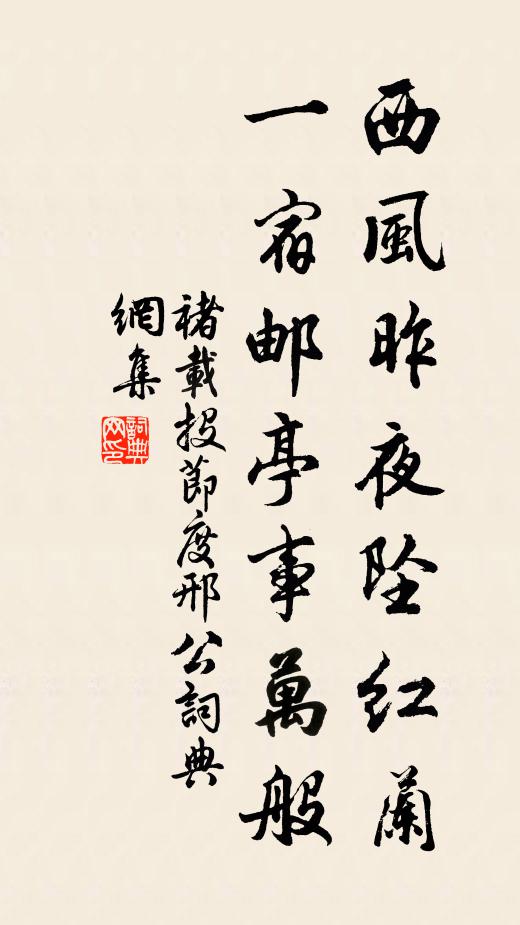 西風昨夜坠红蘭
一宿邮亭事萬般
褚載投節度邢公詞典
網集
詞典
网印